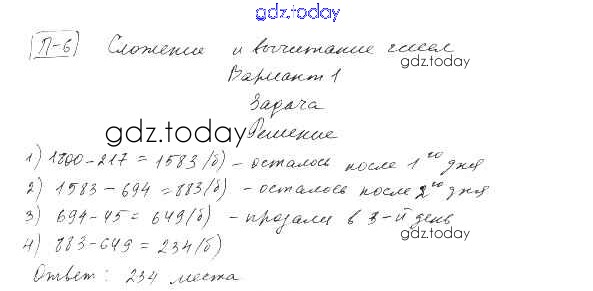 gdz.today
П-6 Сложение и вычитание чисел
gdz.today
Вариант 1
Задача
gdz.today
Решение
1) 1800-217 = 1583 (б) - осталось после 1го дня
2) 1583 - 694 = 883 (б) - осталось после 2го дня
3) 694-45 = 649 (б) - продали в 3-й день
gdz.today
4) 883-649 = 234 (б)
Ответ: 234 места